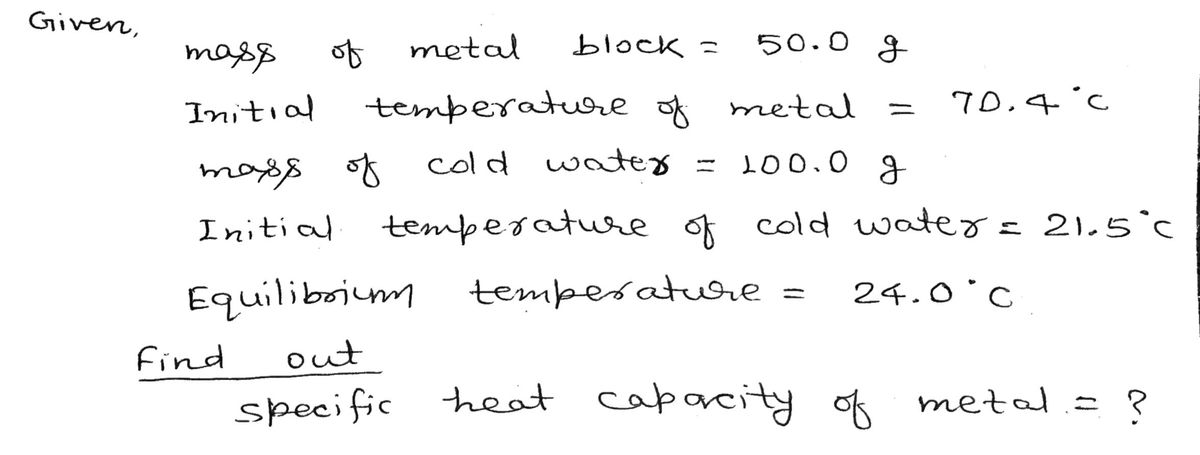 Given,
mass of metal block = 50.0 g
Initial temperature of metal = 70.4 °C
mass of cold water = 100.0 g
Initial temperature of cold water = 21.5 °C
Equilibrium temperature = 24.0 °C
Find out
specific heat capacity of metal = ?